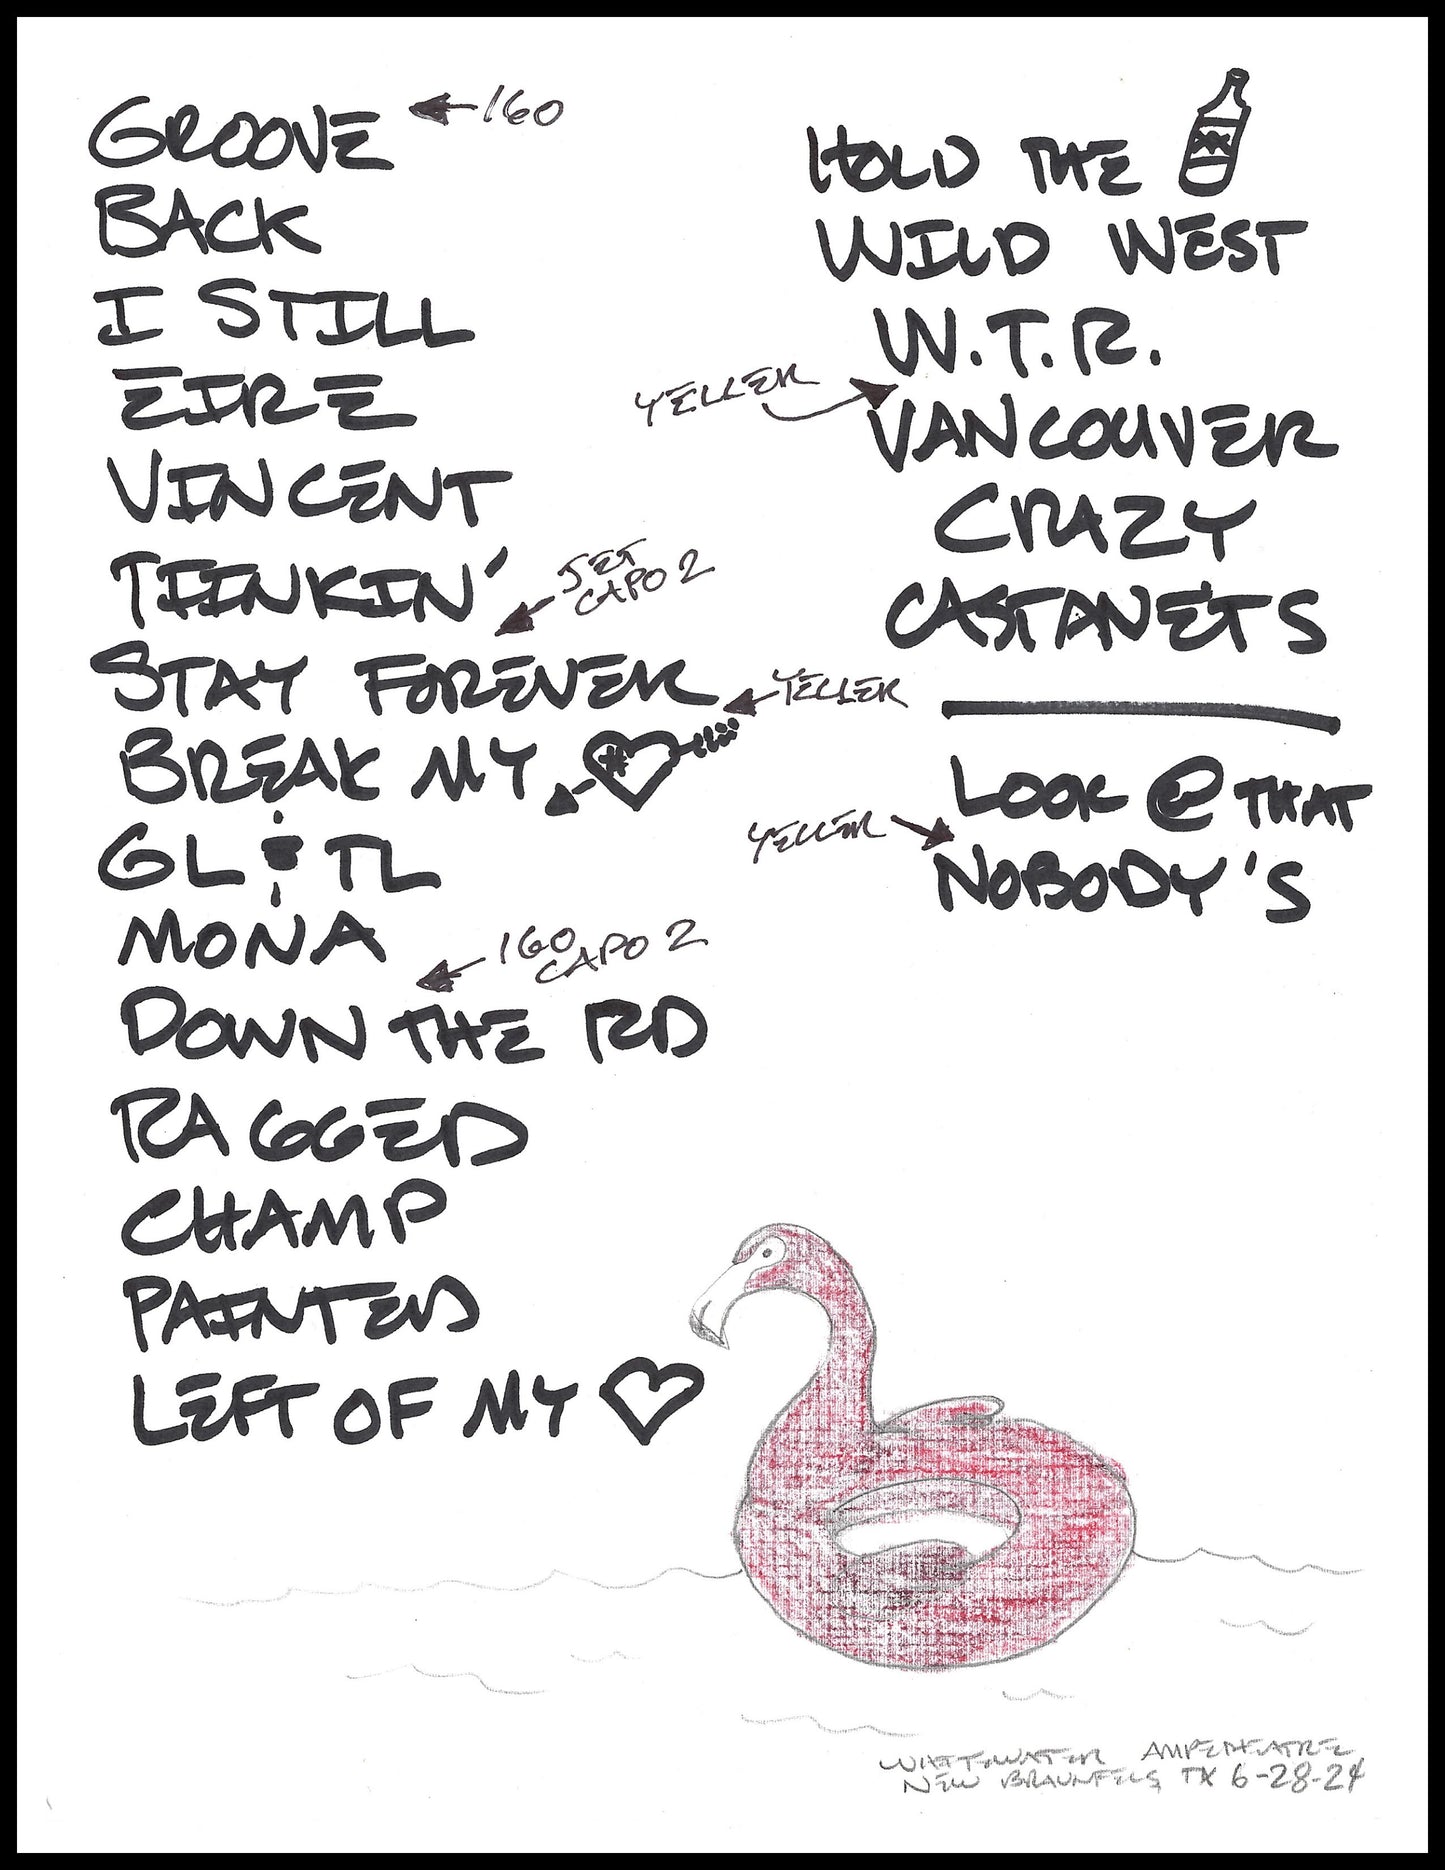 GROOVE
160
BACK
I STILL
EIRE
VINCENT
THINKIN'
JET
CAPO 2
STAY FOREVER
YELLER
BREAK MY
GL & TL
MONA
160
CAPO 2
DOWN THE RD
RAGGED
CHAMP
PAINTED
LEFT OF MY
HOLD THE
XX
WILD WEST
W.T.R.
YELLER
VANCOUVER
CRAZY
CASTANETS
LOOK @ THAT
YELLER
NOBODY'S
WHITEWATER AMPITHEATRE
NEW BRAUNFELS, TX 6-28-24